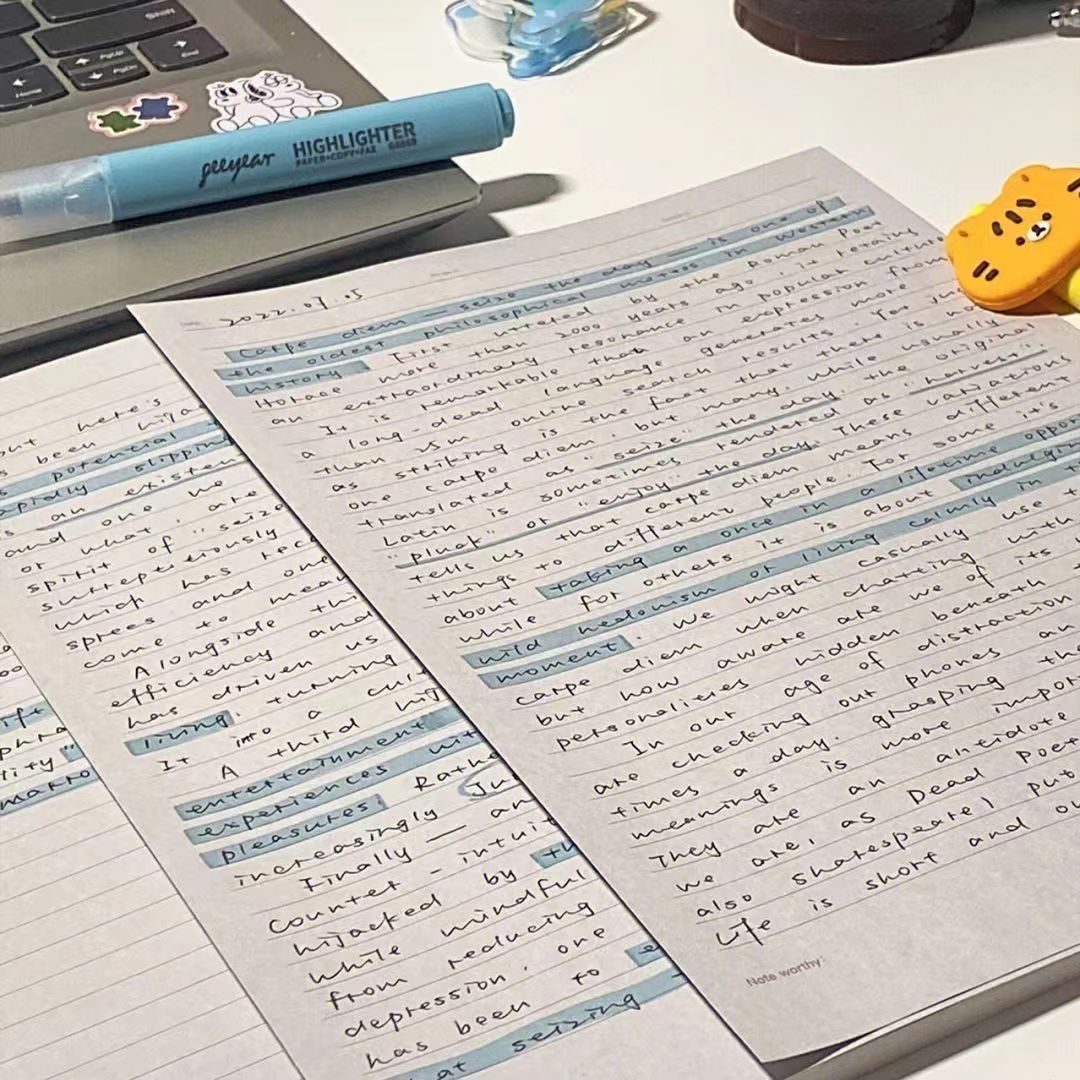 Shift
PgUp
PgDn
End
Home
geeyear HIGHLIGHTER
PAPER•COPY•FAX
2022.07.05
Carpe diem — seize the day — is one of
the oldest philosophical mottos in Western
history. First uttered by the Roman Poet
Horace more than 2000 years ago, it retains
an extraordinary resonance in popular culture
It is remarkable that an expression from
a long-dead language generates more
than online search results. Yet just
as striking is the fact that there is no
one carpe diem, but many. while usually
translated as "seize the day, the original
Latin is sometimes rendered as "harvest",
"pluck" or "enjoy the day. These variations
tells us that carpe diem means different
things to different people. For some it's
about taking a once in a lifetime oppor
while for others it is about indulgin
wild hedonism or living calmly in t
moment. We might casually use t
carpe diem when chatting with
but how aware are we of its
personalities hidden beneath
In our age of distraction
are checking our phones an
times a day. grasping the
meanings is more impor
They are an antidote
we are, as Dead Poet
also sharespeare) put
Life is short and ou
Note worthy:
but here's
s been hijac
s potential
apidly slippin
an existen
and one we
or what, are
spirit of "seize
surreptitiously
which has rec
sprees and one
come to mean
Alongside th
efficiency and
has driven us
living, turning
It into a cul
A third hi
entertainment
experiences wit
pleasures: Rathe
increasingly Ju
Finally — an
counter-intuit
hijacked by th
while mindful
from reducing
depression, one
has been to e
at seizing
ift
phra
tity"